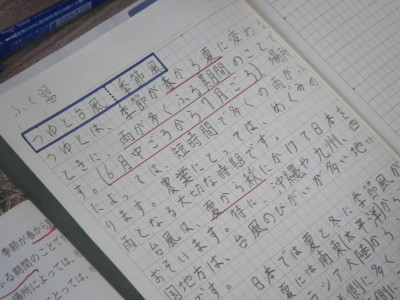 ふく習
つゆと台風 季節風
つゆとは、季節が春から夏に変わ
ときに、雨が多くふる期間のことで
す。(6月中ごろから7月ごろ) 場所
によっては、短時間で多くの雨がふ
ります。農業にとっては、めぐみの
雨となる大切な時期です。
台風は、夏から秋にかけて日本を
おそいます。特に、沖縄や九州、四
国地方は、台風のひがいが多い地い
です。
日本では夏と冬に季節風が
夏には南東太平洋から
シア大陸から
側に多く
側に
季節が春から
ふる期間のことで
場所によっては、
とっては、